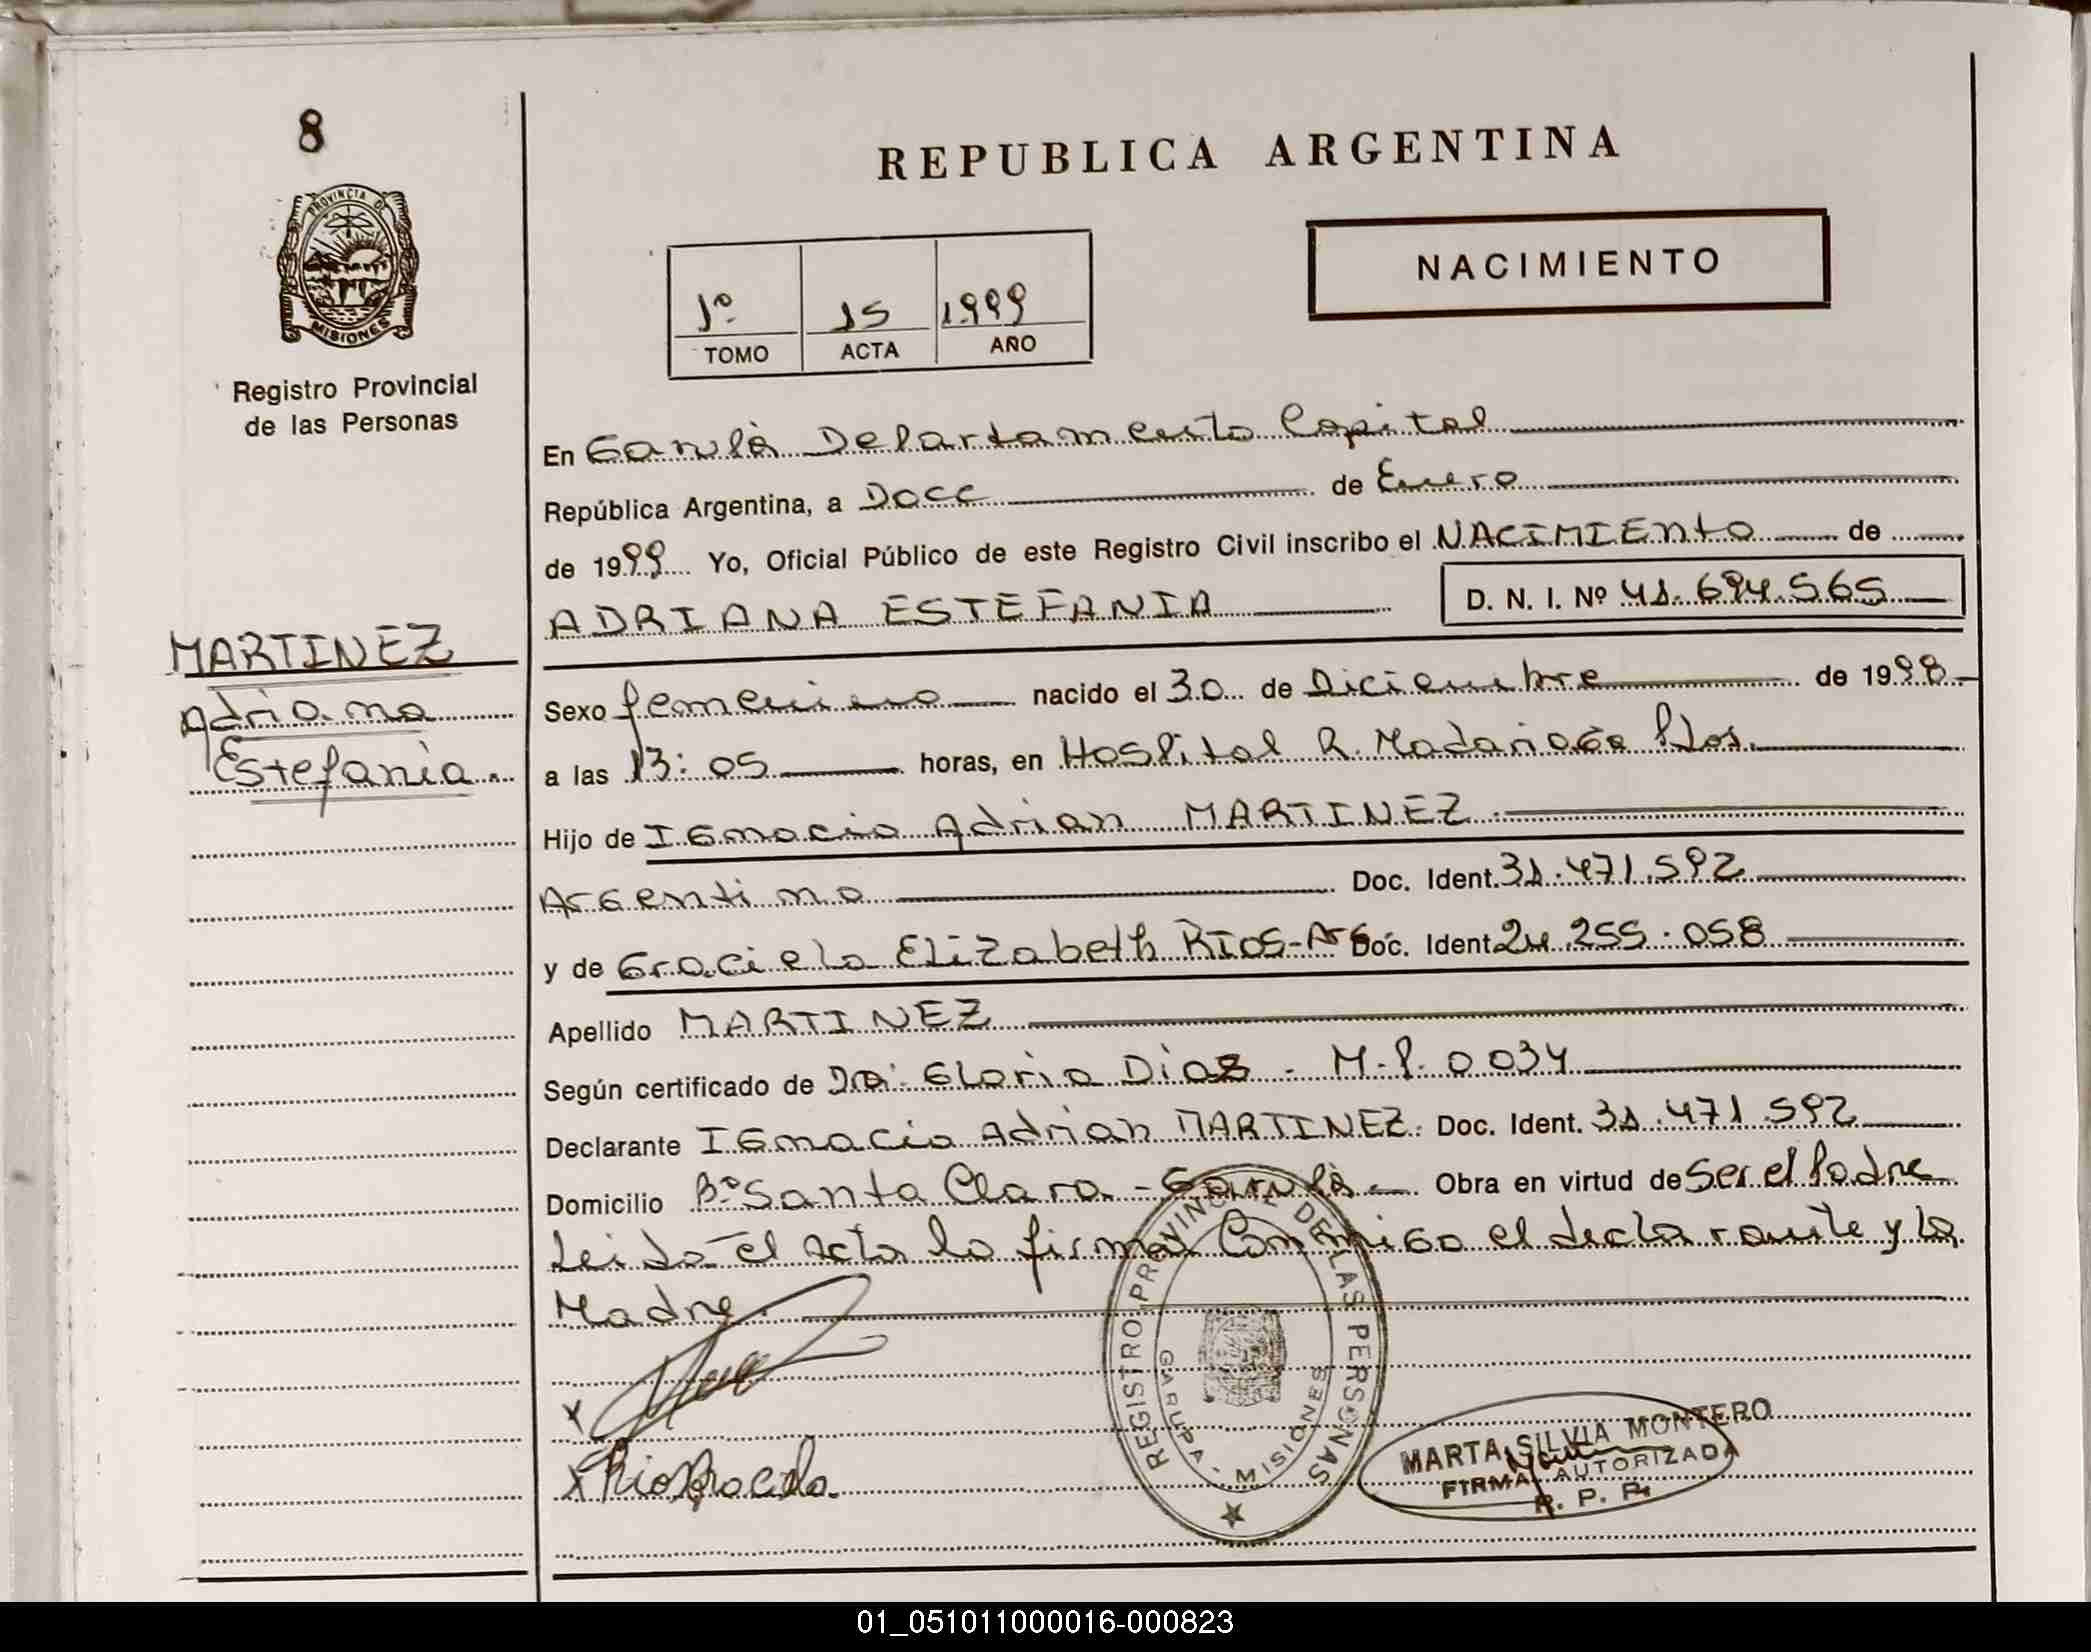 8
PROVINCIA DE
MISIONES
Registro Provincial
de las Personas
REPUBLICA ARGENTINA
NACIMIENTO
1º 15 1999
TOMO ACTA AÑO
MARTINEZ
Adriana
Estefania.
En Garupà Departamento Capital
República Argentina, a Doce de Enero
de 1999 Yo, Oficial Público de este Registro Civil inscribo el NACIMIENTO de
ADRIANA ESTEFANIA D. N. I. Nº 41.694.565
Sexo femenino nacido el 30 de Diciembre de 1998
a las 13:05 horas, en Hospital R. Madariaga Pdos.
Hijo de Ignacio Adrian MARTINEZ
Argentino Doc. Ident. 31.471.592
y de Graciela Elizabeth RIOS-Arg. Doc. Ident 24.255.058
Apellido MARTINEZ
Según certificado de Dra. Gloria Diaz - M.P. 0034
Declarante Ignacio Adrian MARTINEZ. Doc. Ident. 31.471.592
Domicilio Bº Santa Clara - Garupà Obra en virtud de Ser el Padre
Leida el acta la firma Conmigo el declarante y la
Madre.
x
x Rios Graciela
REGISTRO PROVINCIAL DE LAS PERSONAS
GARUPA - MISIONES
MARTA SILVIA MONTERO
FIRMA AUTORIZADA
R. P. P.
01_051011000016-000823